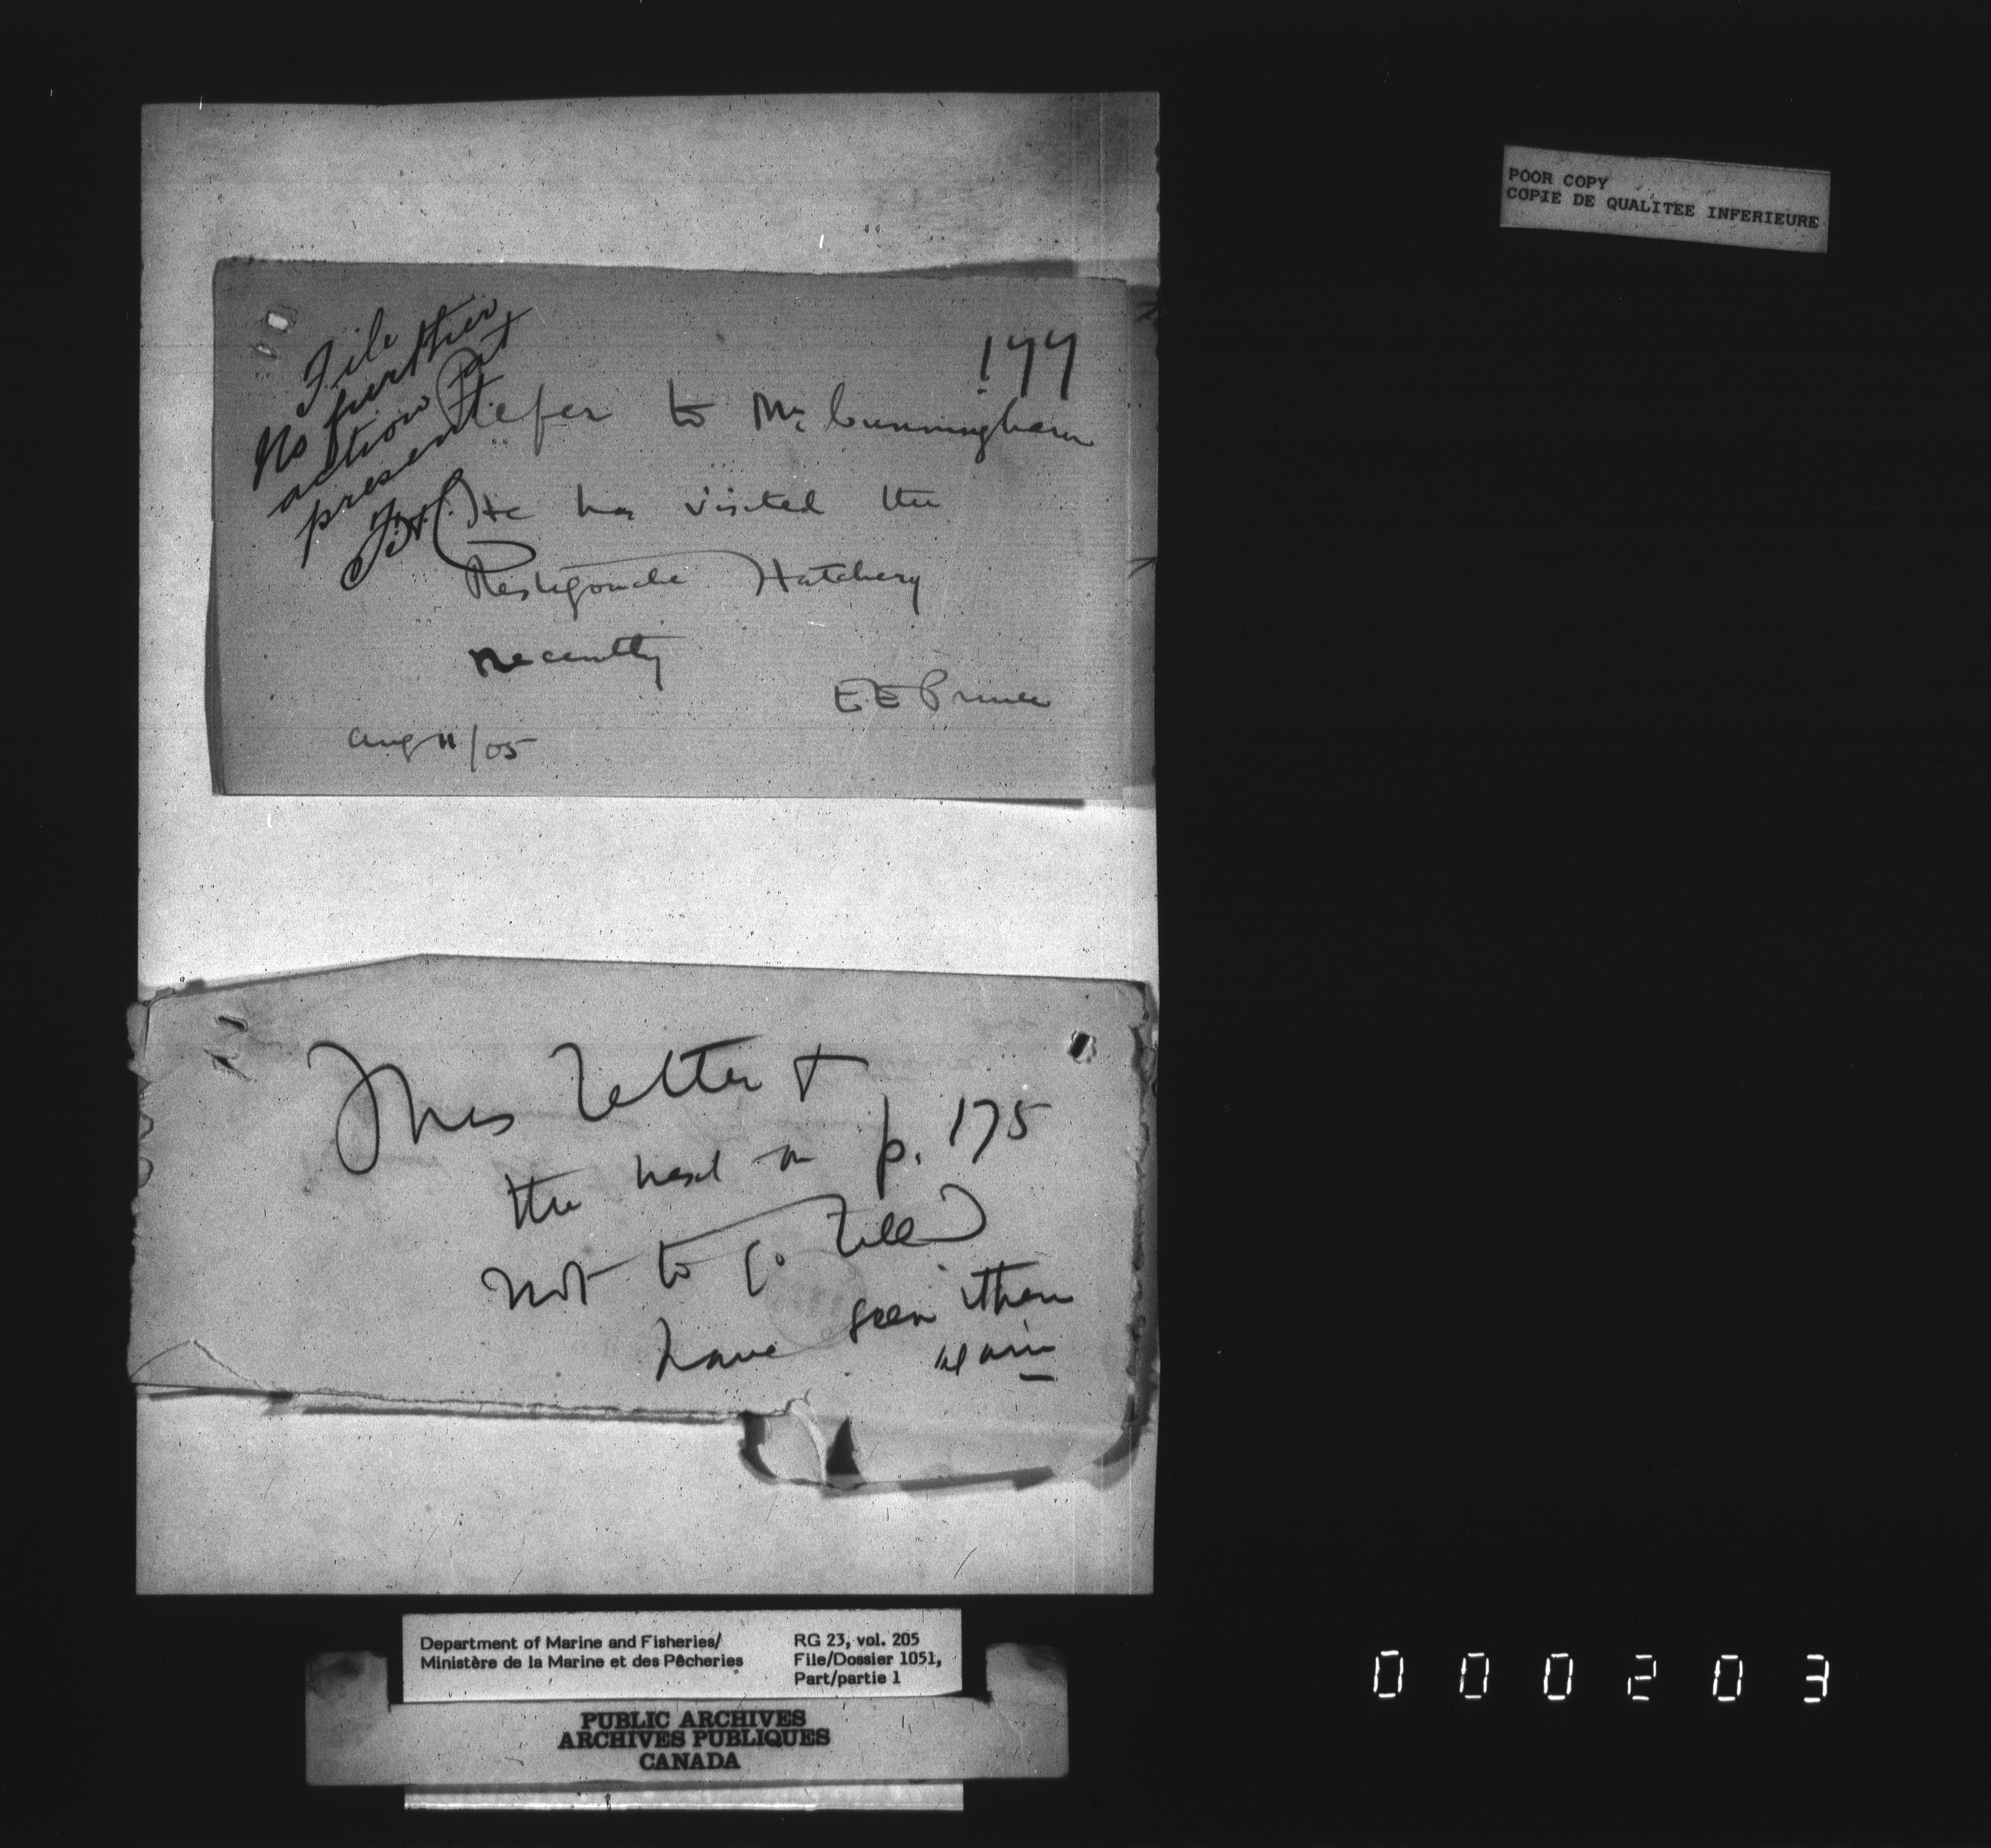 POOR COPY
COPIE DE QUALITEE INFERIEURE
177
File
No further
action at
present
Refer to Mr Cunningham
He has visited the
Restigouche Hatchery
recently
E E Prince
Aug 11/05
This letter +
the next on p. 175
not to be filed
have seen them
Department of Marine and Fisheries/
Ministère de la Marine et des Pêcheries
RG 23, vol. 205
File/Dossier 1051,
Part/partie 1
PUBLIC ARCHIVES
ARCHIVES PUBLIQUES
CANADA
000203